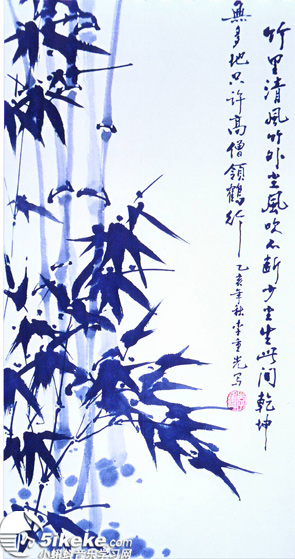 竹里清風竹外尘風吹不断少尘生此间乾坤
無多地只许高僧領鶴行
乙亥年秋李重光写
51keke.com
小蝌蚪音乐学习网